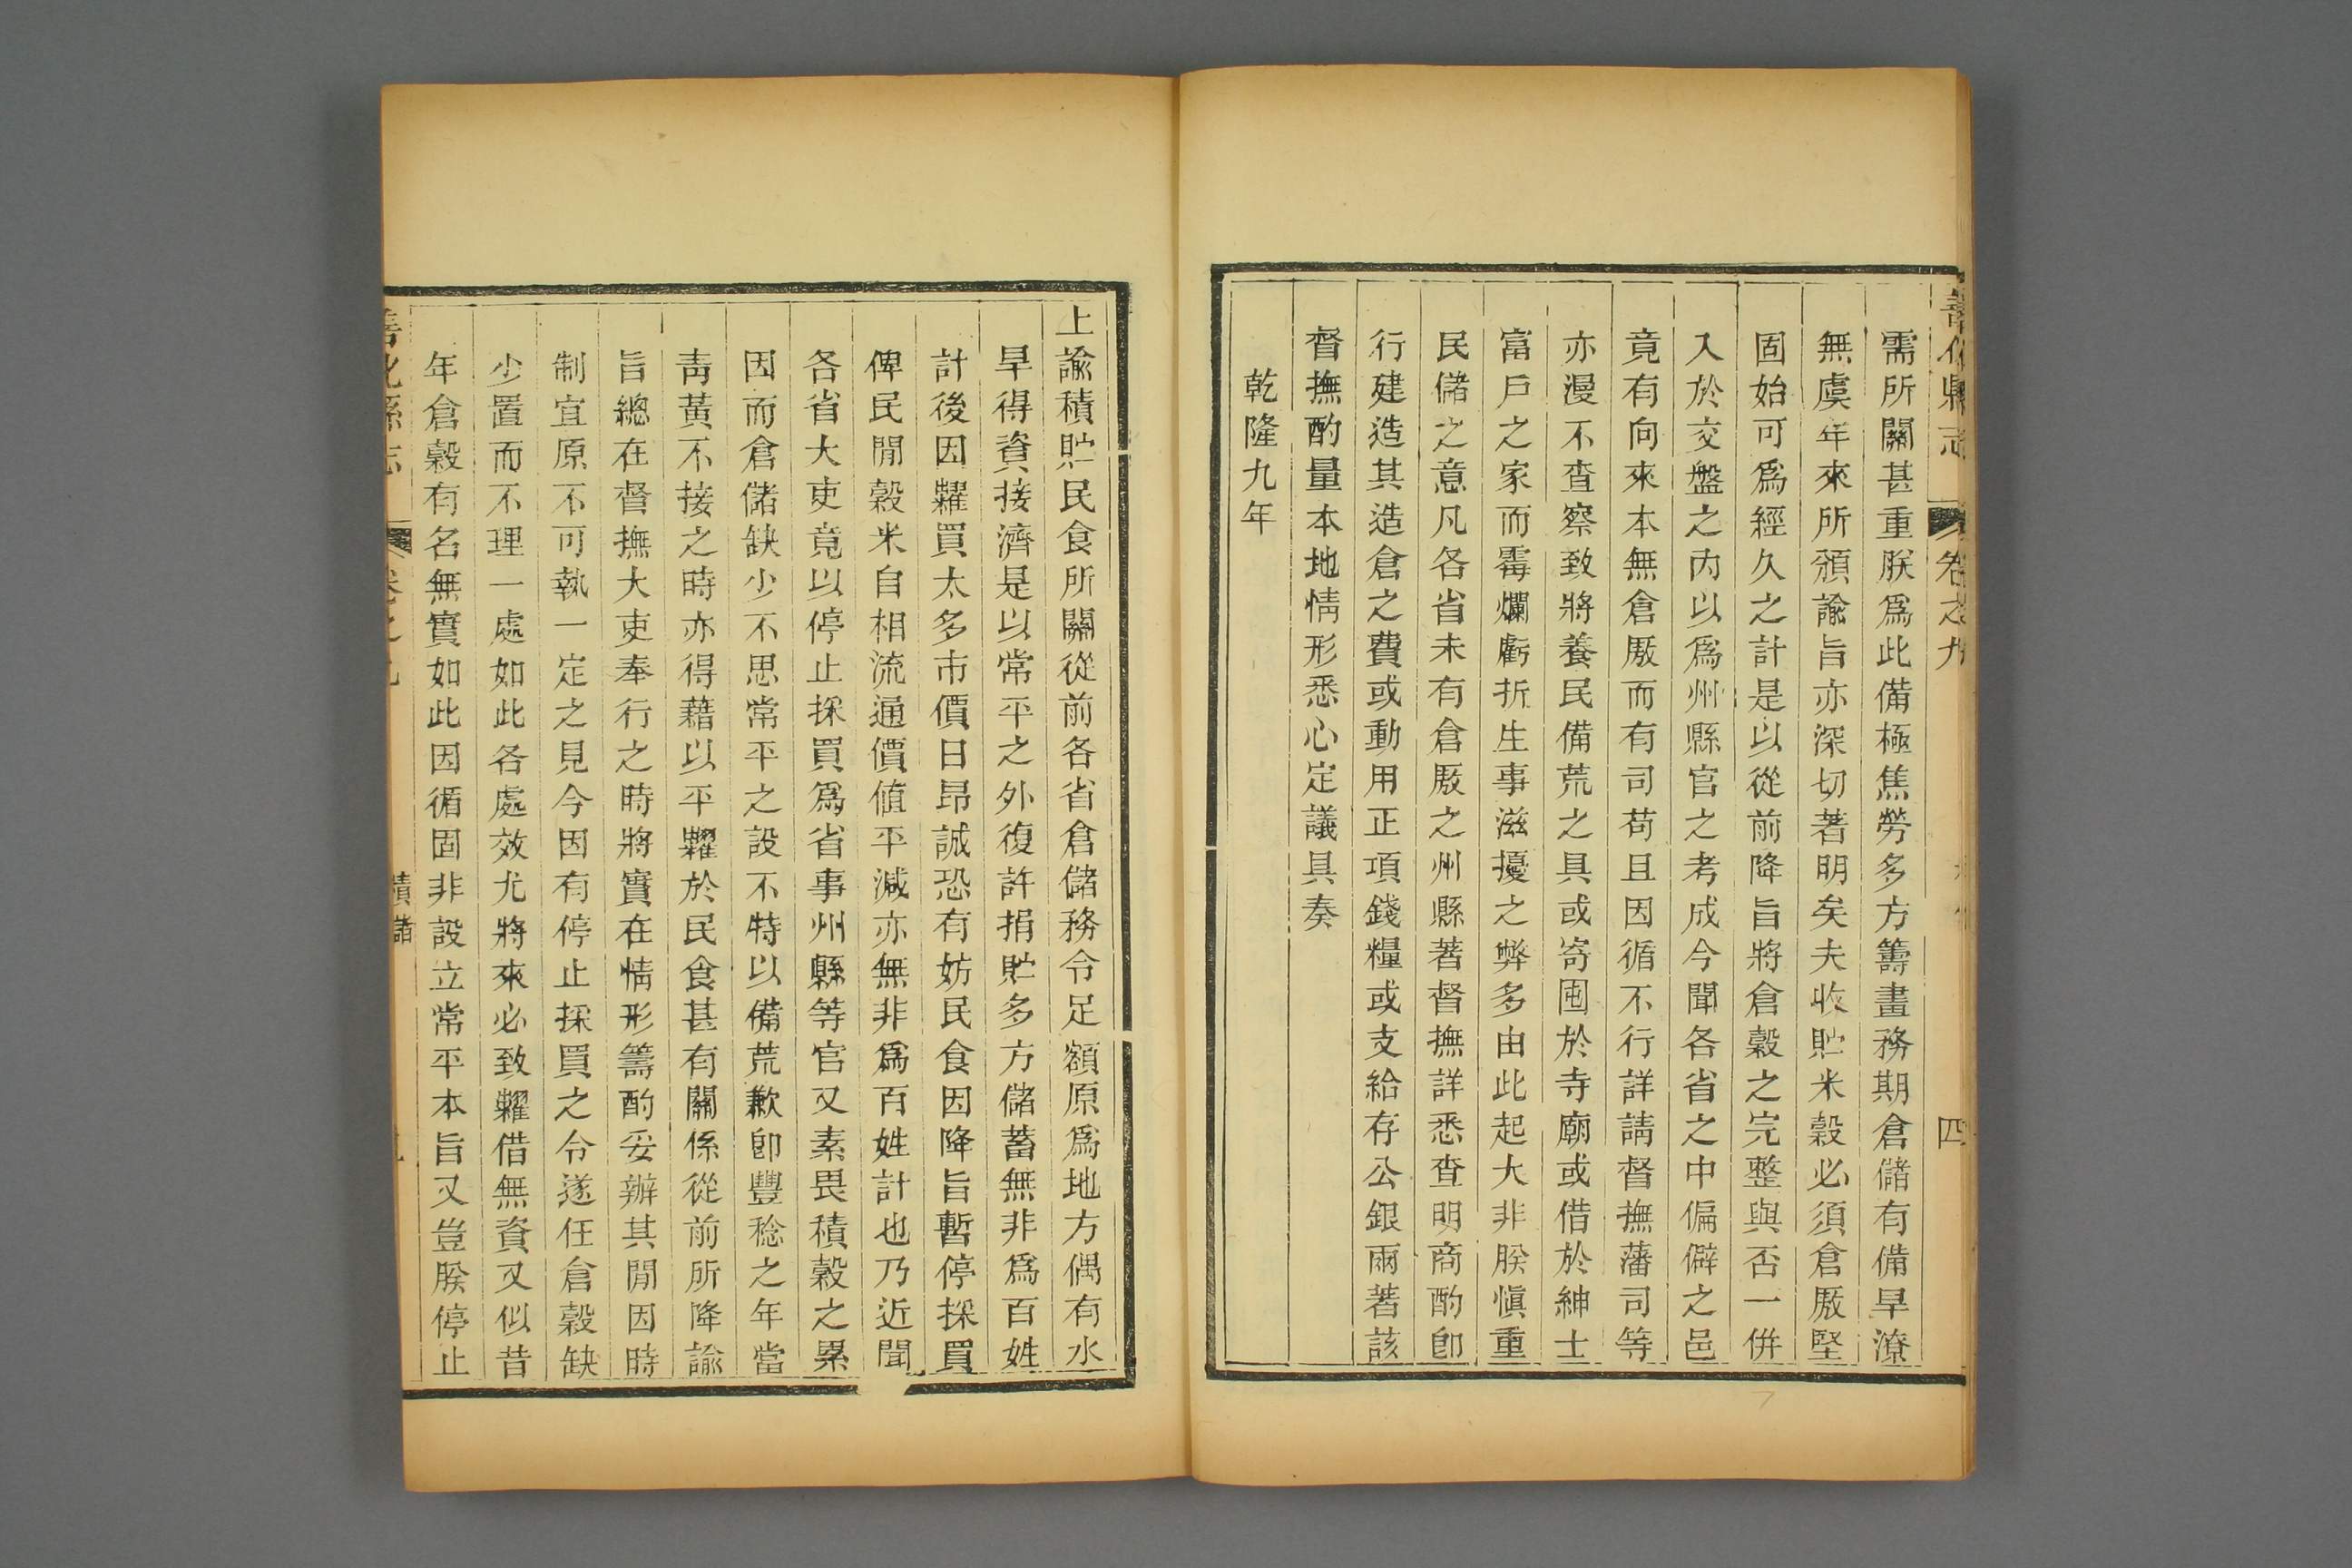 善化縣志 卷之九 四
需所關甚重朕爲此備極焦勞多方籌畫務期倉儲有備旱潦
無虞年來所頒諭旨亦深切著明矣夫收貯米穀必須倉厫堅
固始可爲經久之計是以從前降旨將倉穀之完整與否一併
入於交盤之內以爲州縣官之考成今聞各省之中偏僻之邑
竟有向來本無倉厫而有司苟且因循不行詳請督撫藩司等
亦漫不查察致將養民備荒之具或寄囤於寺廟或借於紳士
富戶之家而霉爛虧折生事滋擾之弊多由此起大非朕愼重
民儲之意凡各省未有倉厫之州縣著督撫詳悉查明商酌卽
行建造其造倉之費或動用正項錢糧或支給存公銀兩著該
督撫酌量本地情形悉心定議具奏
乾隆九年
上諭積貯民食所關從前各省倉儲務令足額原爲地方偶有水
旱得資接濟是以常平之外復許捐貯多方儲蓄無非爲百姓
計後因糴買太多市價日昂誠恐有妨民食因降旨暫停採買
俾民閒穀米自相流通價値平減亦無非爲百姓計也乃近聞
各省大吏竟以停止採買爲省事州縣等官又素畏積穀之累
因而倉儲缺少不思常平之設不特以備荒歉卽豐稔之年當
靑黃不接之時亦得藉以平糶於民食甚有關係從前所降諭
旨總在督撫大吏奉行之時將實在情形籌酌妥辦其閒因時
制宜原不可執一定之見今因有停止採買之令遂任倉穀缺
少置而不理一處如此各處效尤將來必致糶借無資又似昔
年倉穀有名無實如此因循固非設立常平本旨又豈朕停止
善化縣志 卷之九 積儲